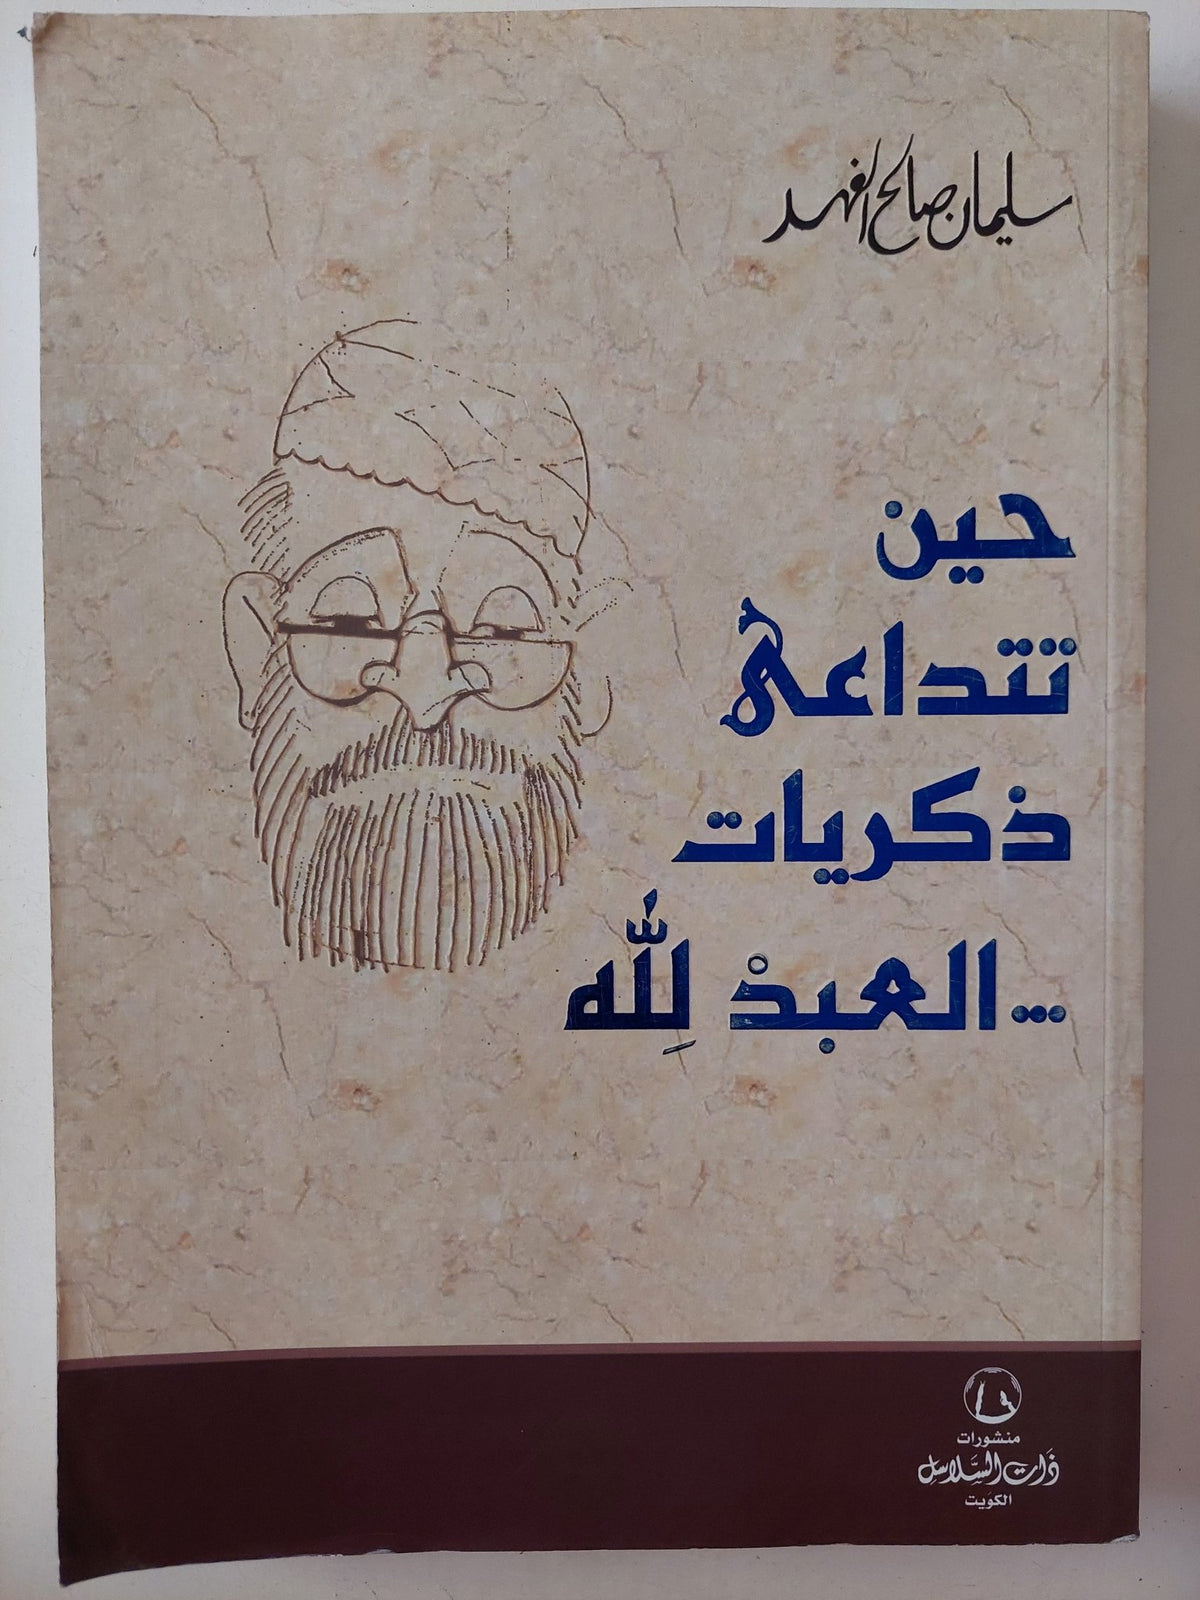 سليمان صالح الفهد
حين
تتداعى
ذكريات
...العبدْ لِلّٰه
منشورات
ذَات السَّلاسِل
الكويت